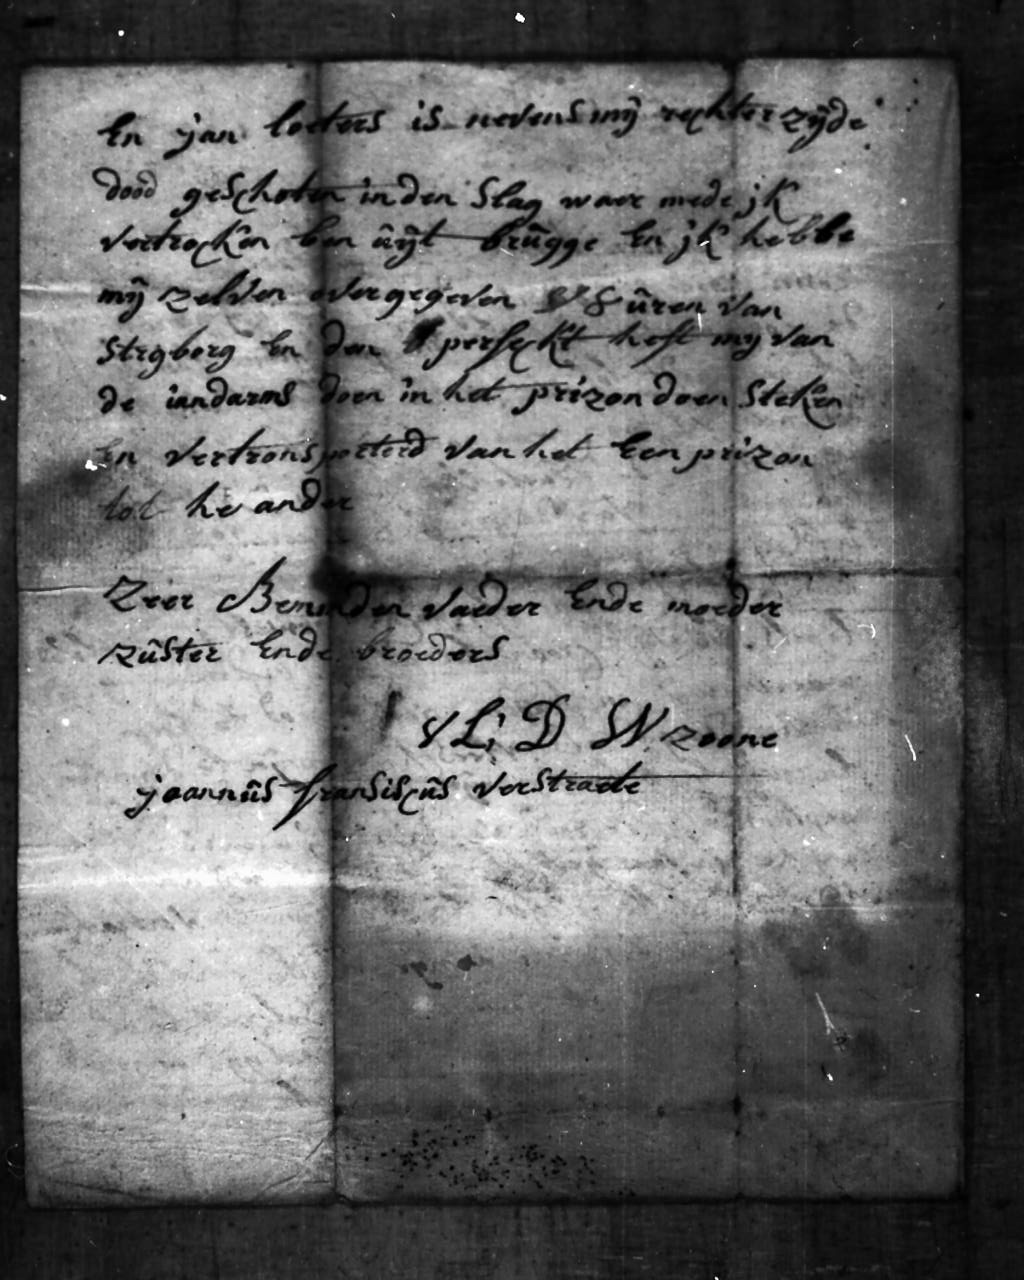 En jan loeters is nevens mij rechter zijde
dood geschoten in den Slag waer mede jk
vertrocken ben uijt brugge En jk hebbe
mij zelven overgegeven 8 uren van
Strgborg En den perfeckt heft mij van
de iandarms doen in het prizon doen Steken
En vertransporterd van het Een prizon
tot he ander
Zeer Beminden vaeder Ende moeder
zuster Ende broeders
V L; D W zoone
joannus fransiscus verstraete